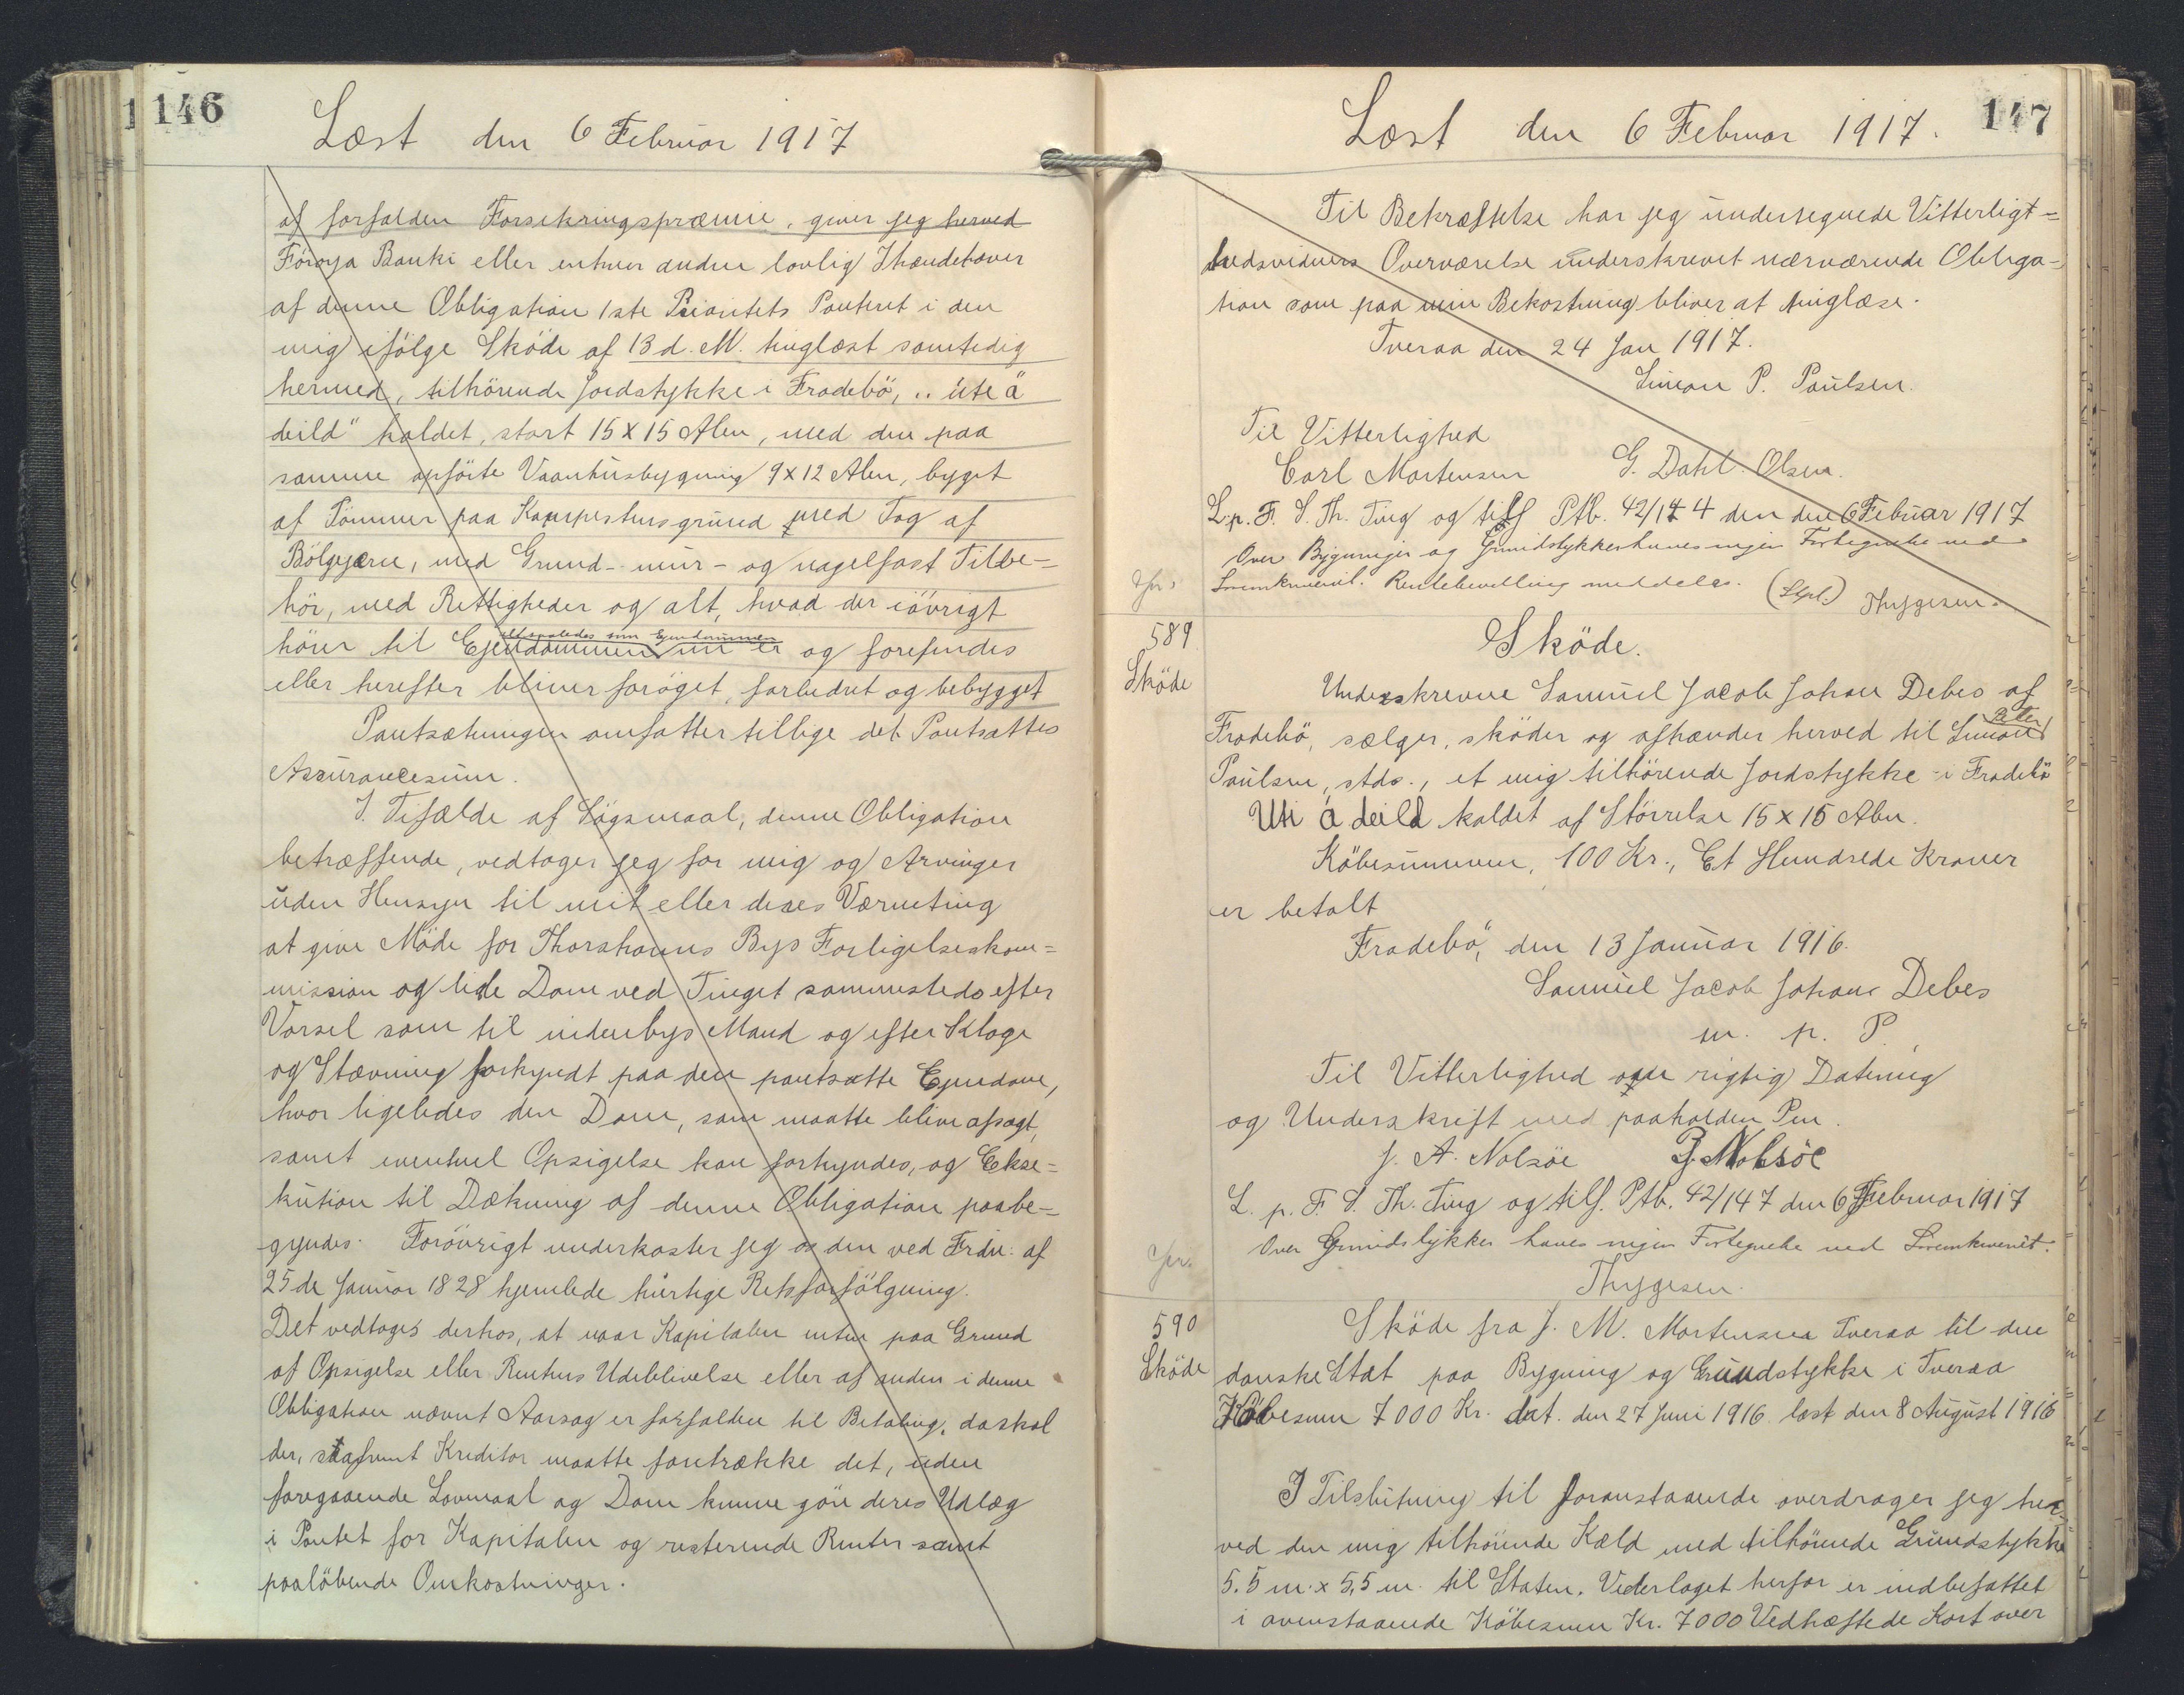 146
Læst den 6 Februar 1917
af forfalden Forsikringspræmie, giver jeg herved
Föroya Banki eller enhver anden lovlig Ihændehaver
af denne Obligation 1ste Prioritets Panteret i den
mig ifölge Sköde af 13 d. M. tinglæst samtidig
hermed, tilhörende Jordstykke i Frodebö, „úte á
deild" kaldet, stort 15 x 15 Alen, med den paa
samme opförte Vaanhusbygning 9 x 12 Alen, bygget
af Tömmer paa Kampestensgrund med Tag af
Bölgejærn, med Grund- mur- og nagelfast Tilbe=
hör, med Rettigheder og alt, hvad der iövrigt
alt saaledes som Ejendommen
hörer til Ejendommen nu er og forefindes
eller herefter bliver foröget, forbedret og bebygget
Pantsætningen omfatter tillige det Pantsattes
Assurancesum.
I Tifælde af Sögsmaal, denne Obligation
betræffende, vedtager jeg for mig og Arvinger
uden Hensyn til mit eller deres Værneting
at give Möde for Thorshavns Bys Forligelseskom=
mission og lide Dom ved Tinget sammesteds efter
Varsel som til indenbys Mand og efter Klage
og Stævning forkyndt paa den pantsatte Ejendom,
hvor ligeledes den Dom, som maatte blive afsagt,
samt eventuel Opsigelse kan forkyndes, og Ekse=
kution til Dækning af denne Obligation paabe=
gyndes. Forövrigt underkaster jeg os den ved Frdn. af
25de Januar 1828 hjemlede hurtige Retsforfölgning.
Det vedtages derhos, at naar Kapitalen enten paa Grund
af Opsigelse eller Rentens Udeblivelse eller af anden i denne
Obligation nævnt Aarsag er forfalden til Betaling, da skal
der, saafremt Kreditor maatte foretrække det, uden
foregaaende Lovmaal og Dom kunne göre deres Udlæg
i Pantet for Kapitalen og resterende Renter samt
paalöbende Omkostninger.
147
Læst den 6 Februar 1917.
Til Bekræftelse har jeg undertegnede Vitterligt=
hedsvidners Overværelse underskrevet nærværende Obliga=
tion som paa min Bekostning bliver at tinglæse.
Tveraa den 24 Jan 1917.
Simon P. Poulsen.
Til Vitterlighed
Carl Mortensen G. Dahl-Olsen.
L. p. F. S. Th. Ting og tilf Ptb. 42/144 den den 6 Februar 1917
Over Bygninger og Grundstykker haves ingen Fortegnelse ved
Sorenskriverit. Rentebevilling meddeles. (Stpl.) Thygesen.
589
Sköde
Sköde.
Underskrevne Samuel Jacob Johan Debes af
Frodebö, sælger, sköder og afhænder herved til Simon
Peter
Poulsen, stds., et mig tilhörende Jordstykke i Frodebö
Uti á deild kaldet af Störrelse 15 x 15 Alen.
Köbesummen, 100 Kr., Et Hundrede Kroner
er betalt
Frodebö, den 13 Januar 1916.
Samuel Jacob Johan Debes
m. p. P.
Til Vitterlighed om rigtig Datering
og Underskrift med paaholden Pen.
J. A. Nolsöe P. Nolsöe
L. p. F. S. Th. Ting og tilf. Ptb. 42/147 den 6 Februar 1917
Over Grundstykker haves ingen Fortegnelse ved Sorenskriverit.
Thygesen.
590
Sköde
Sköde fra J. M. Mortensen Tveraa til den
danske Stat paa Bygning og Grundstykke i Tveraa
Köbesum 7000 Kr. dat. den 27 Juni 1916 læst den 8 August 1916
I Tilslutning til foranstaaende overdrager jeg her=
ved den mig tilhörende Kæld med tilhörende Grundstykke
5.5 m. x 5,5 m. til Staten. Vederlaget herfor er indbefattet
i ovenstaaende Köbesum Kr. 7000 Vedhæftede Kort over